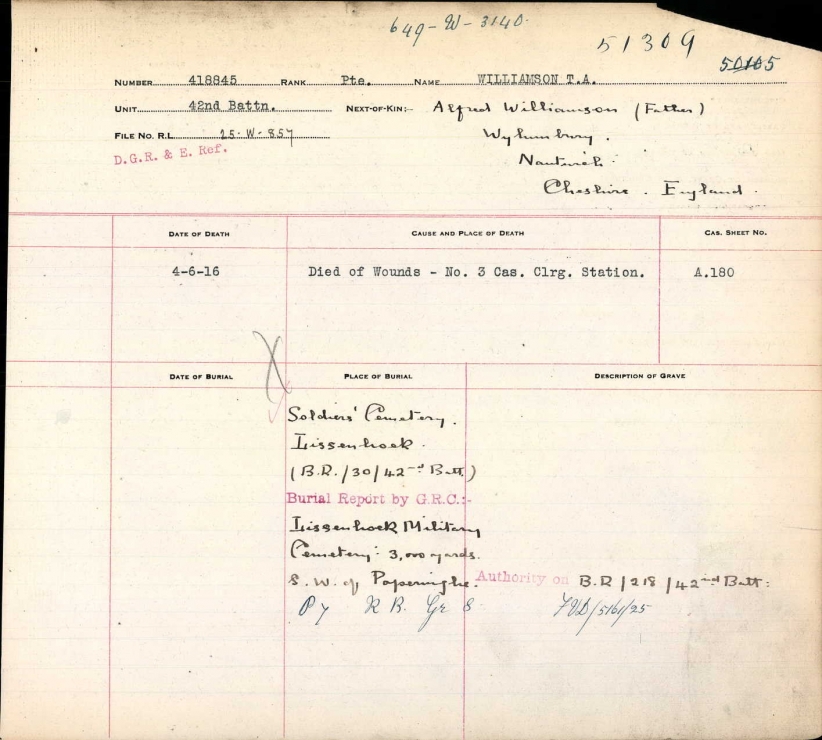 649-W-3140
51309
50105
NUMBER 418845 RANK Pte. NAME WILLIAMSON T.A.
UNIT 42nd Battn. NEXT-OF-KIN:- Alfred Williamson (Father)
FILE NO. R.L. 25-W-857 Wybunbury.
D.G.R. & E. Ref. Nantwich.
Cheshire. England.
DATE OF DEATH CAUSE AND PLACE OF DEATH CAS. SHEET NO.
4-6-16 Died of Wounds - No. 3 Cas. Clrg. Station. A.180
DATE OF BURIAL PLACE OF BURIAL DESCRIPTION OF GRAVE
Soldiers' Cemetery.
Lissenhoek.
(B.R./30/42nd Batt)
Burial Report by G.R.C.:-
Lissenhoek Military
Cemetery: 3,000 yards.
S. W. of Poperinghe. Authority on B.R/218/42nd Batt:
R B. Gr 8